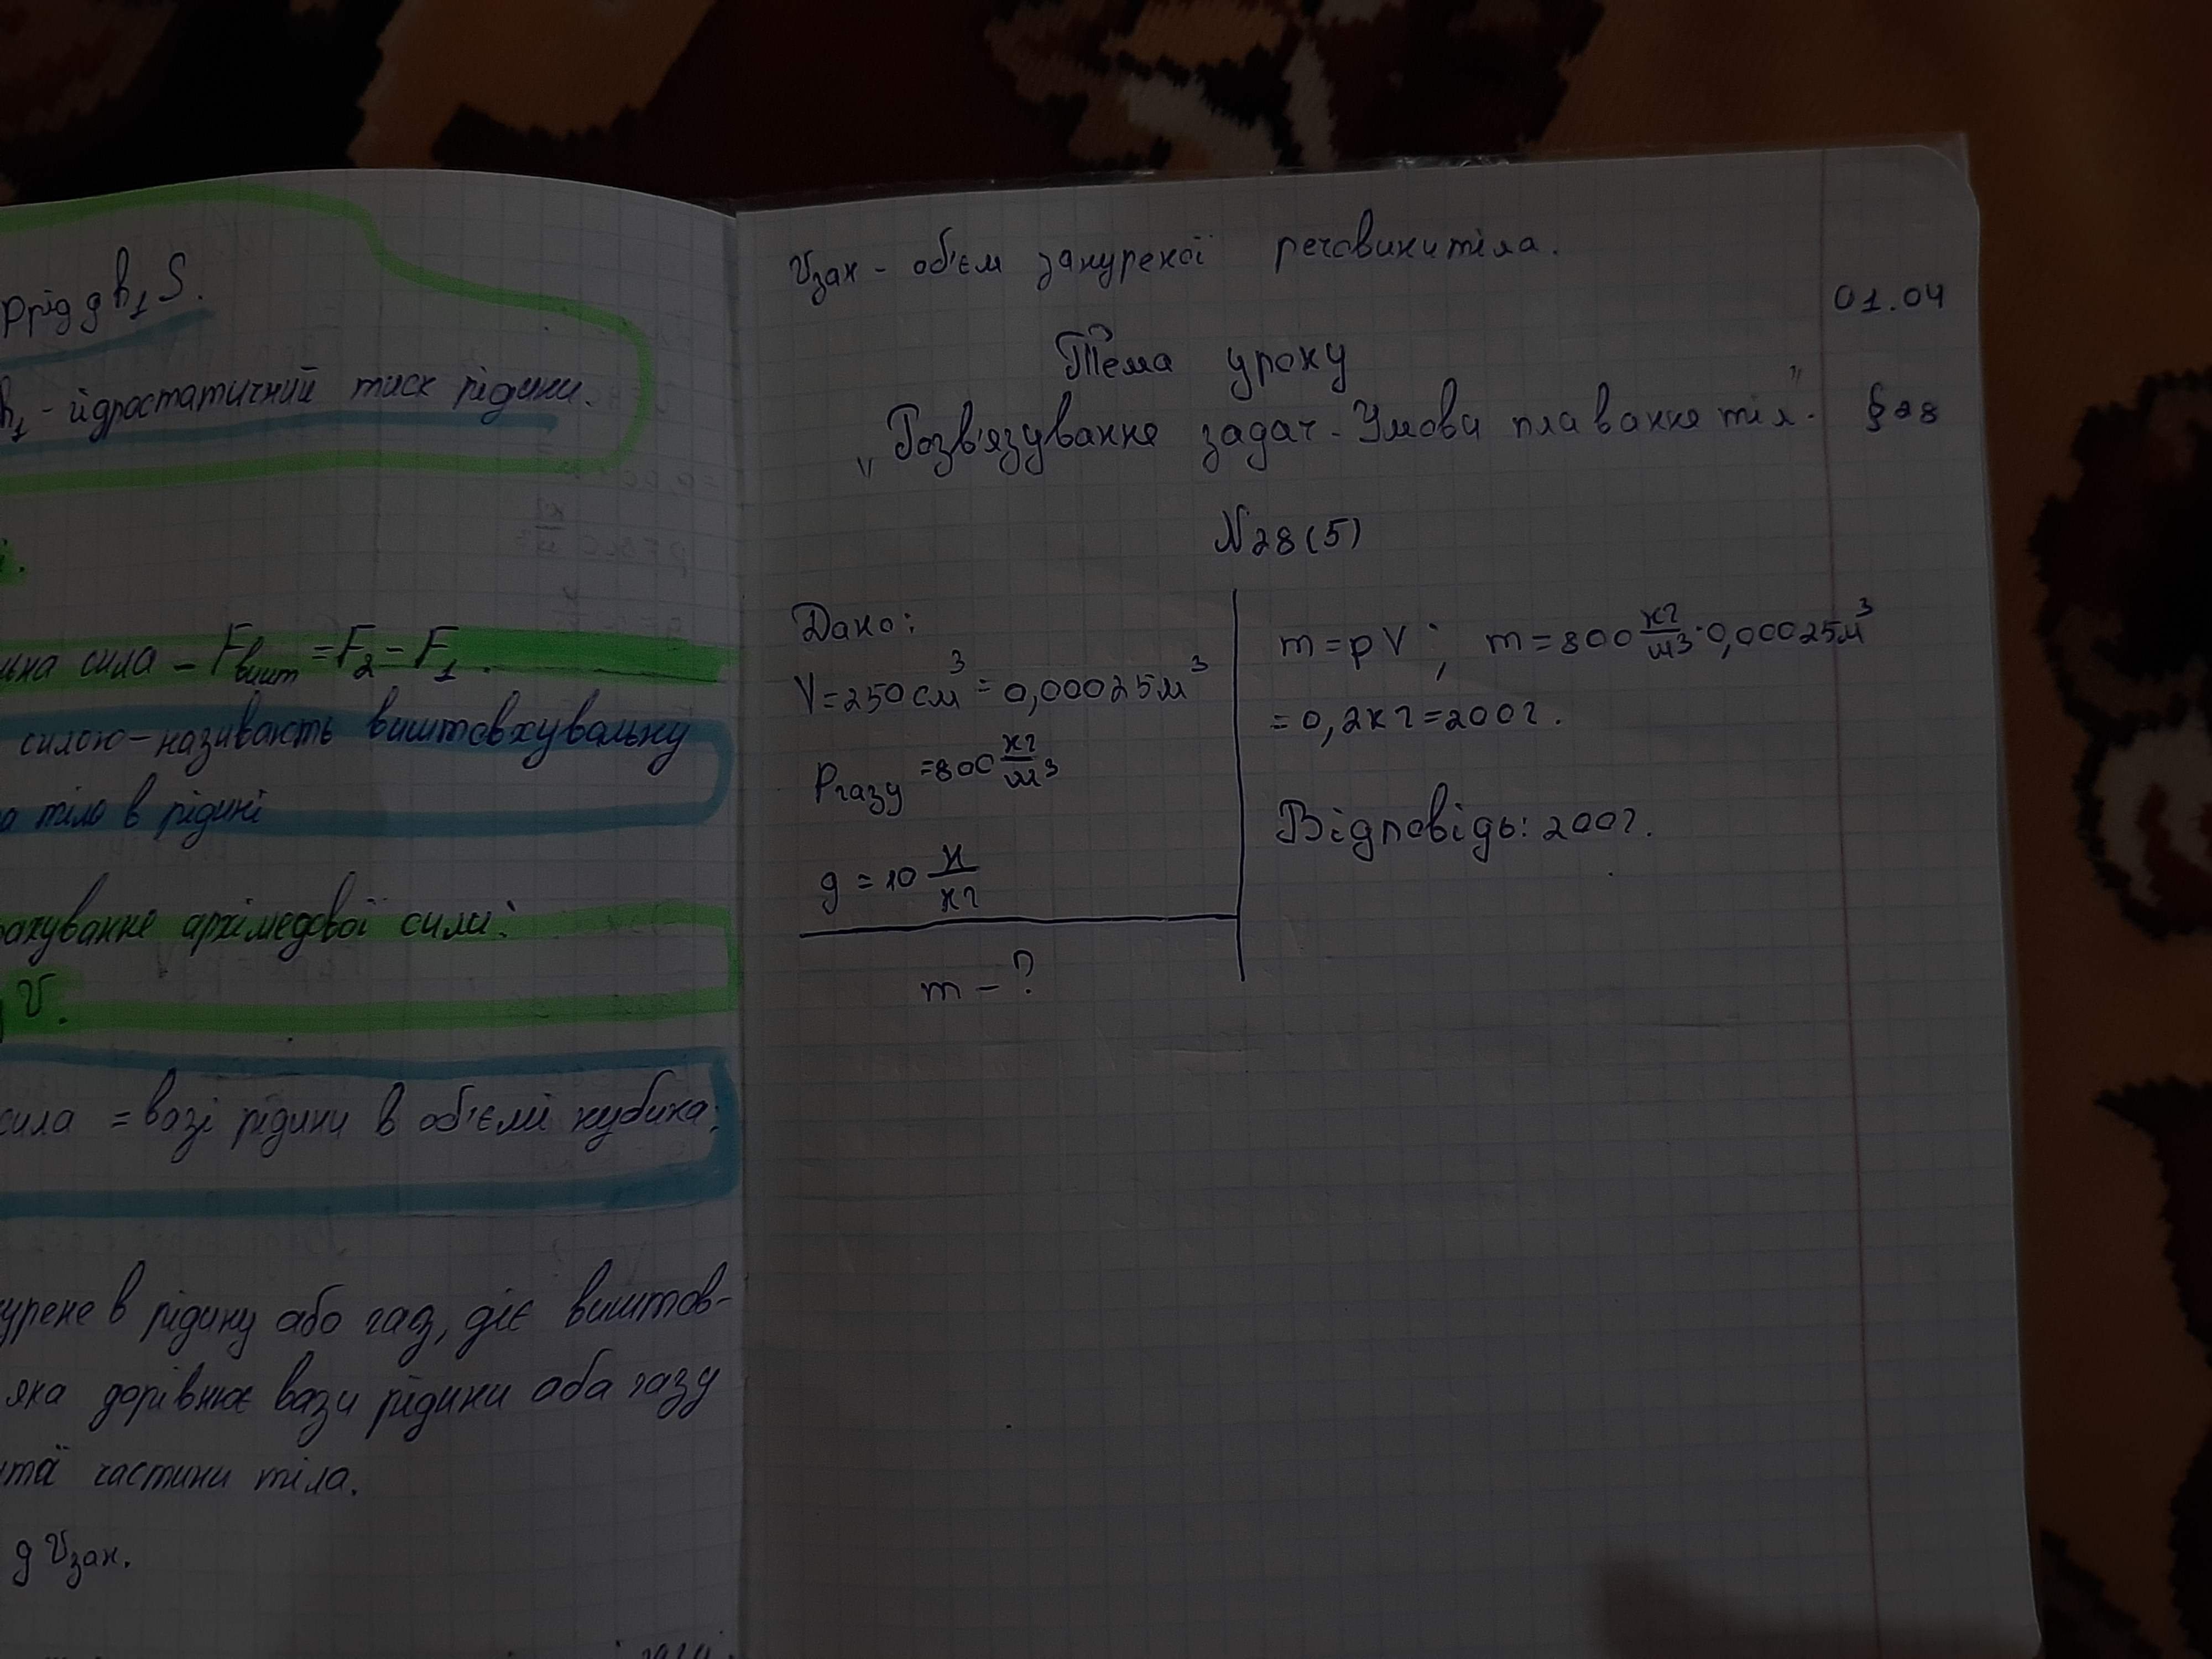 ρрід g h₁ S.
h₁ - йдростатичний тиск рідини.
сила - Fвишт = F₂ - F₁.
силою - називають виштовхувальну
тіло в рідині
архімедової сили:
V.
сила = вазі рідини в об'ємі кубика;
в рідину або газ, діє виштов-
яка дорівнює вази рідини аба газу
частини тіла.
g Vзан.
Vзан - об'єм зануреної речовини тіла.
01.04
Тема уроку
„Розв'язування задач. Умови плавання тіл". §28
N28(5)
Дано:
V = 250 см³ = 0,00025 м³
ρгазу = 800 кг/м³
g = 10 Н/кг
m - ?
m = ρV; m = 800 кг/м³ · 0,00025 м³
= 0,2 кг = 200 г.
Відповідь: 200 г.